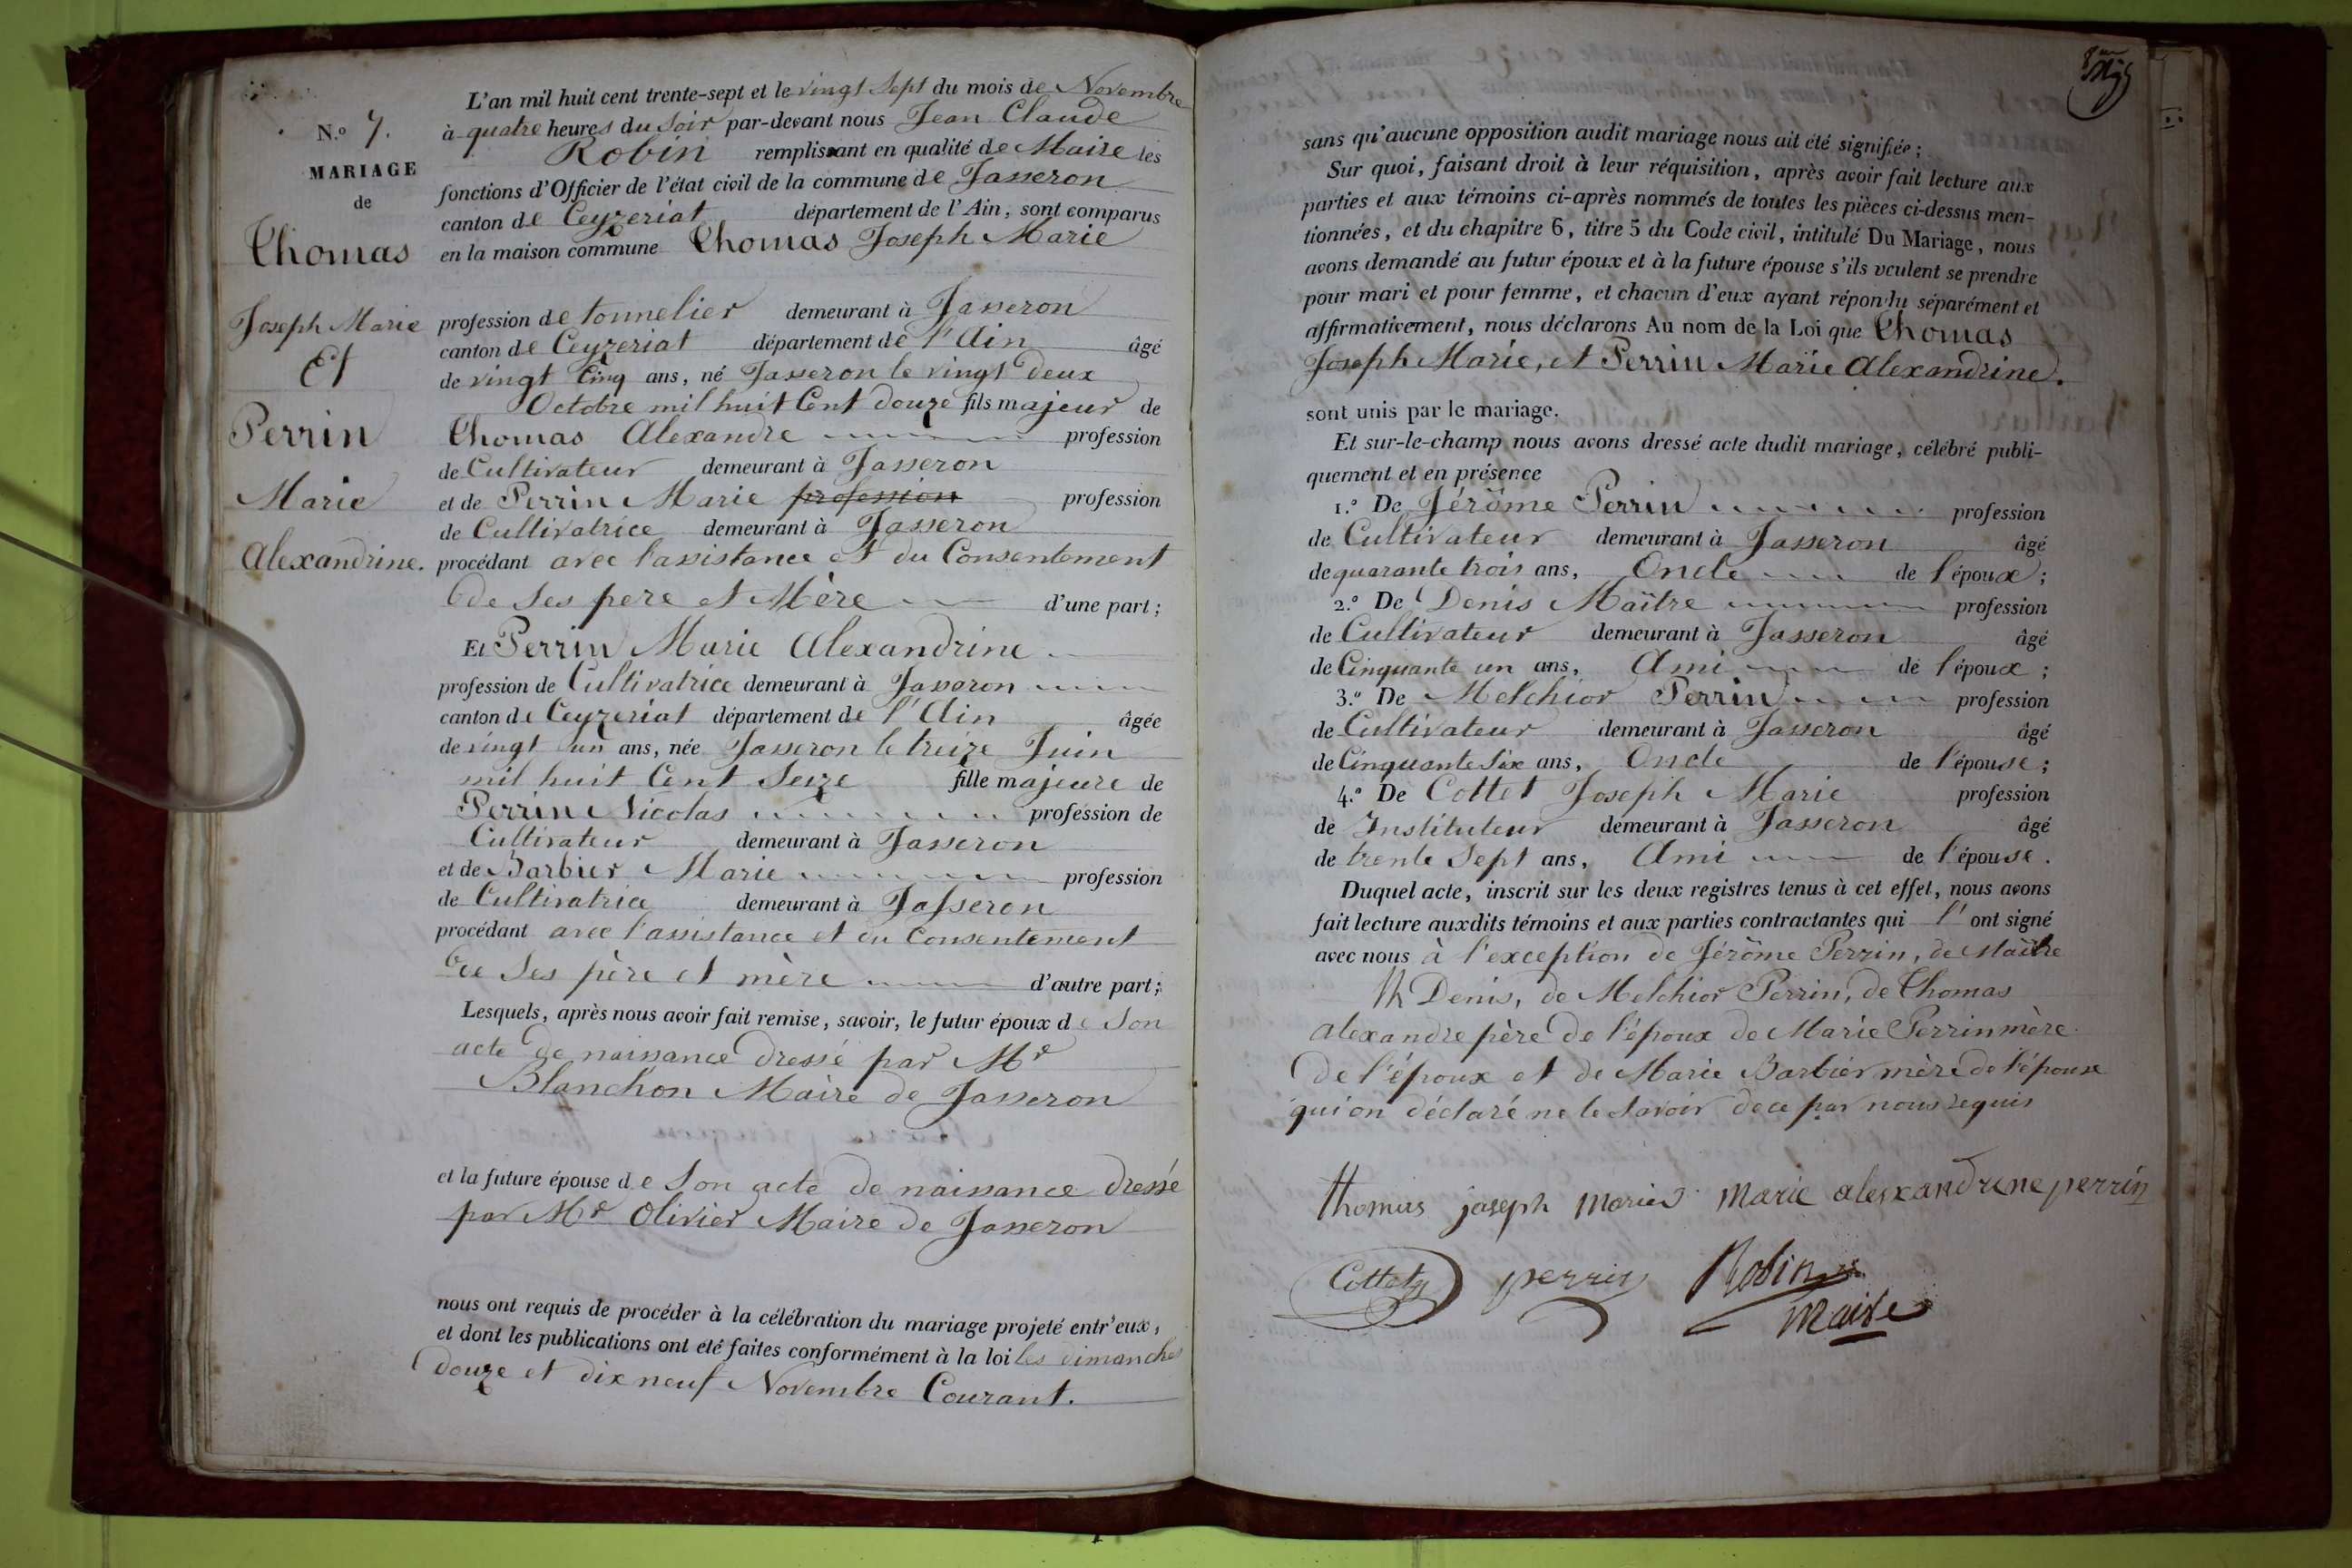 N.º 7.
MARIAGE
de
Thomas
Joseph Marie
Et
Perrin
Marie
Alexandrine.
L'an mil huit cent trente-sept et le vingt Sept du mois de Novembre
à quatre heures du Soir par-devant nous Jean Claude
Robin remplissant en qualité de Maire les
fonctions d'Officier de l'état civil de la commune de Jasseron
canton de Ceyzeriat département de l'Ain, sont comparus
en la maison commune Thomas Joseph Marie
profession de tonnelier demeurant à Jasseron
canton de Ceyzeriat département de l'Ain âgé
de vingt Cinq ans, né Jasseron le vingt Deux
Octobre mil huit Cent douze fils majeur de
Thomas Alexandre profession
de Cultivateur demeurant à Jasseron
et de Perrin Marie profession profession
de Cultivatrice demeurant à Jasseron
procédant avec l'assistance et du Consentement
de Ses pere et Mère d'une part ;
Et Perrin Marie Alexandrine
profession de Cultivatrice demeurant à Jasseron
canton de Ceyzeriat département de l'Ain âgée
de vingt un ans, née Jasseron le treize Juin
mil huit Cent Seize fille majeure de
Perrin Nicolas profession de
Cultivateur demeurant à Jasseron
et de Barbier Marie profession
de Cultivatrice demeurant à Jasseron
procédant avec l'assistance et du Consentement
de Ses père et mère d'autre part ;
Lesquels, après nous avoir fait remise, savoir, le futur époux de Son
acte de naissance dressé par Mr
Blanchon Maire de Jasseron
et la future épouse de Son acte de naissance dressé
par Mr Olivier Maire de Jasseron
nous ont requis de procéder à la célébration du mariage projeté entr'eux,
et dont les publications ont été faites conformément à la loi les dimanches
douze et dix neuf Novembre Courant.
sans qu'aucune opposition audit mariage nous ait été signifiée ;
Sur quoi, faisant droit à leur réquisition, après avoir fait lecture aux
parties et aux témoins ci-après nommés de toutes les pièces ci-dessus men-
tionnées, et du chapitre 6, titre 5 du Code civil, intitulé Du Mariage, nous
avons demandé au futur époux et à la future épouse s'ils veulent se prendre
pour mari et pour femme, et chacun d'eux ayant répondu séparément et
affirmativement, nous déclarons Au nom de la Loi que Thomas
Joseph Marie, et Perrin Marie Alexandrine.
sont unis par le mariage.
Et sur-le-champ nous avons dressé acte dudit mariage, célébré publi-
quement et en présence
1.º De Jérôme Perrin profession
de Cultivateur demeurant à Jasseron âgé
de quarante trois ans, Oncle de l'époux ;
2.º De Denis Maître profession
de Cultivateur demeurant à Jasseron âgé
de Cinquante un ans, Ami de l'époux ;
3.º De Melchior Perrin profession
de Cultivateur demeurant à Jasseron âgé
de Cinquante Six ans, Oncle de l'épouse ;
4.º De Cottet Joseph Marie profession
de Instituteur demeurant à Jasseron âgé
de trente Sept ans, Ami de l'épouse.
Duquel acte, inscrit sur les deux registres tenus à cet effet, nous avons
fait lecture auxdits témoins et aux parties contractantes qui l'ont signé
avec nous à l'exception de Jérôme Perrin, de Maître
Denis, de Melchior Perrin, de Thomas
alexandre père de l'époux de Marie Perrin mère
de l'époux et de Marie Barbier mère de l'épouse
qui on déclaré ne le Savoir de ce par nous requis
thomas joseph marie marie alexxandrine perrin
Cottet perrin Robin
maire